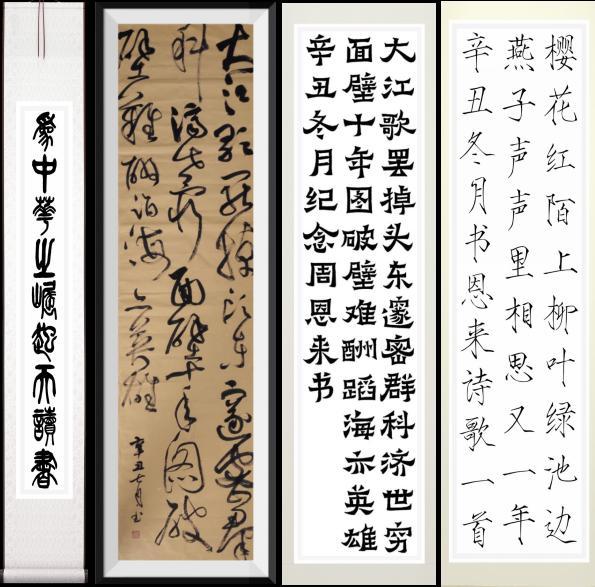 為中華之崛起而讀書
大江歌罢掉头东邃密群
科济世穷面壁十年图破
壁难酬蹈海亦英雄
辛丑七月书
大江歌罢掉头东邃密群科济世穷
面壁十年图破壁难酬蹈海亦英雄
辛丑冬月纪念周恩来书
樱花红陌上柳叶绿池边
燕子声声里相思又一年
辛丑冬月书恩来诗歌一首